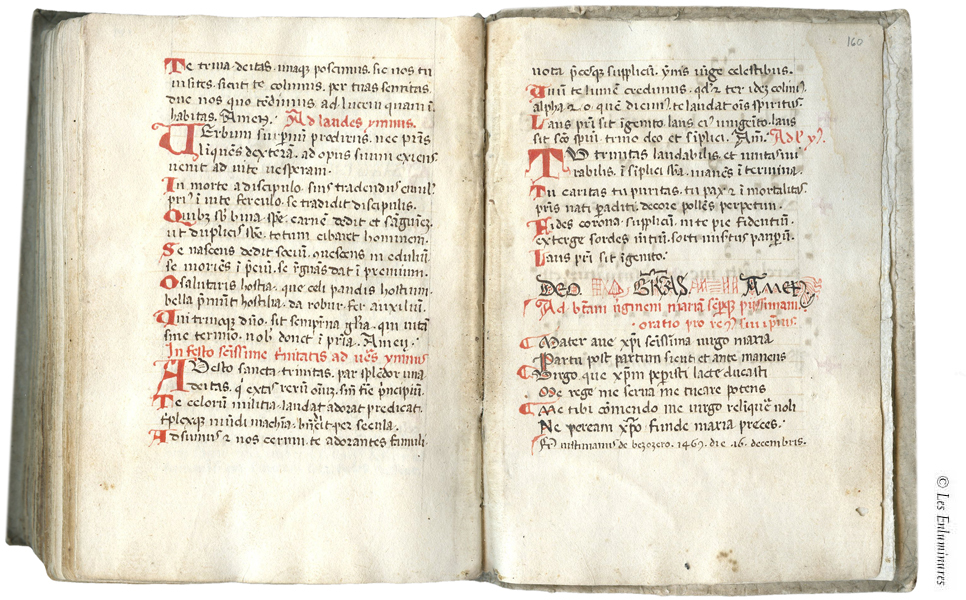 Te trina deitas unaq; poscimus. sic nos tu
visites. sicut te colimus. per tuas semitas
duc nos quo tēdimus. ad lucem quam ī
habitas. Amen. Ad laudes ymnus.
VErbum sup̄nū prodiens. nec pr̄is
liquēs dexterā. ad opus suum exiens
venit ad vite vesperam.
In morte a discipulo. suis tradendus emul'
pri' ī vite ferculo. se tradidit discipulis.
Quib; sb bina spē. carnē dedit et sāguinē
ut duplicis sb̄e. totum cibaret hominem.
Se nascens dedit sociū. quescens in eduliū
se moriēs ī p̄ciū. se r̄gnās dat ī premium.
O salutaris hostia. que celi pandis hostium.
bella p̄mūt hostilia. da robur. fer auxiliū.
Uni trinoque dn̄o. sit sempit̄na gl̄ia. qui vitā
sine termino. nob donet ī pr̄ia. Amen.
In festo sc̄issime t̄nitatis ad ves ymnus
ADesto sancta trinitas. par splēdor una
deitas. q extas rerū om̄iū. sin fīe p̄ncipiū.
Te celorū militia. laudat adorat predicat.
t̄plexq; mūdi machīa. bn̄dicit per secula.
Adsumus et nos cernui. te adorantes famuli.
160
vota p̄cesq; suppliciū. ymnis iūge celestibus.
Unū te lumē credimus. qd et ter idez colimus
alpha et o. quē dicimus. te laudat ois spiritus.
Laus pr̄i sit īgenito. laus ei' unigēito. laus
sit sc̄o spūi. trino deo et sīplici. Am̄. Ad
TU trinitas laudabilis. et unitas mi
rabilis. ī sīplici sb̄a. manēs ī termina.
Tu caritas tu puritas. tu pax et īmortalitas
pr̄is nati paracliti. decore pollēs perpetim.
Fides corona suppliciū. in te pie fidentiū.
exterge sordes
Laus pr̄i sit īgenito.
DEO GRAS. AMEN
Ad btam virginem mariā semp̄q;
oratio pro
Mater ave xp̄i sc̄issima virgo maria
Partu post partum sicut et ante manens
Virgo que xp̄m pep̄isti lacte
Me rege me serva me tueare potens
Me tibi cōmendo me virgo relinq̄re noli
Ne peream xp̄o funde maria preces.
Fr̄ iustinianus de bezozero. 1465. die. 16. decembris.
© Les Enluminures